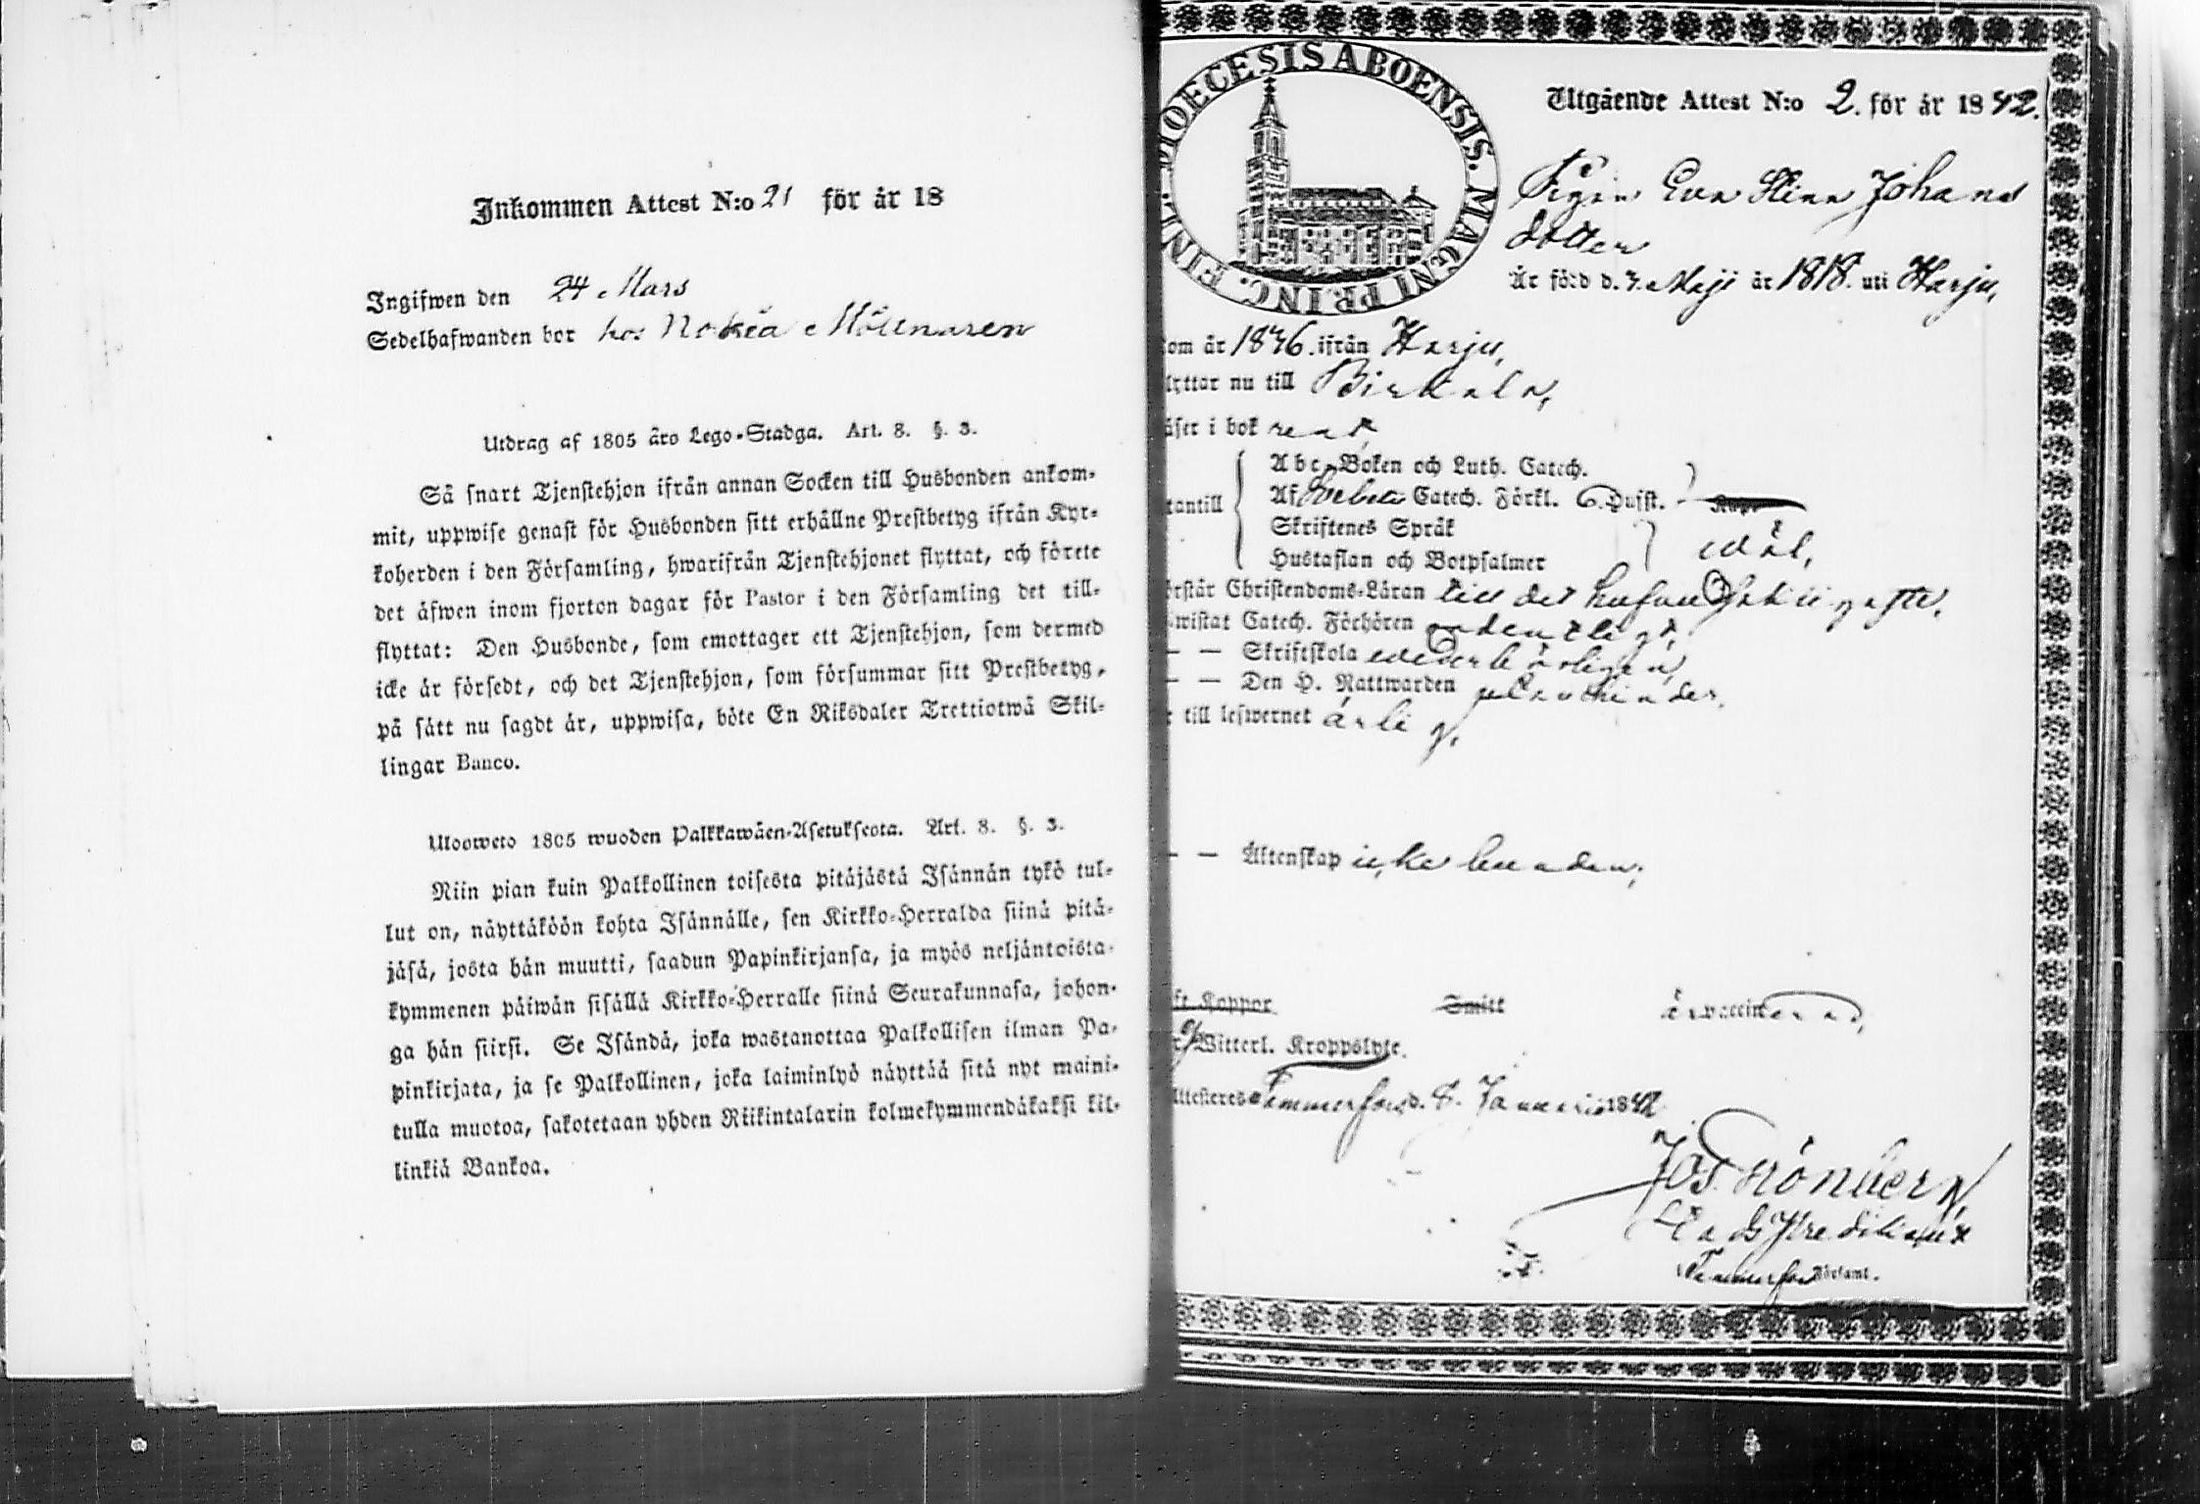 Inkommen Attest N:o 21 för år 18
Ingifwen den 24 Mars
Sedelhafwanden bor hos Nokia Möllnaren
Utdrag af 1805 års Lego-Stadga. Art. 8. §. 3.
Så snart Tjenstehjon ifrån annan Socken till Husbonden ankom-
mit, uppwise genast för Husbonden sitt erhållne Prestbetyg ifrån Kyr-
koherden i den Församling, hwarifrån Tjenstehjonet flyttat, och förete
det äfwen inom fjorton dagar för Pastor i den Församling det till-
flyttat: Den Husbonde, som emottager ett Tjenstehjon, som dermed
icke är försedt, och det Tjenstehjon, som försummar sitt Prestbetyg,
på sätt nu sagdt är, uppwisa, böte En Riksdaler Trettiotwå Skil-
lingar Banco.
Ulosweto 1805 wuoden Palkkawäen-Asetuksesta. Art. 8. §. 3.
Niin pian kuin Palkollinen toisesta pitäjästä Isännän tykö tul-
lut on, näyttäköön kohta Isännälle, sen Kirkko-Herralda siinä pitä-
jäsä, josta hän muutti, saadun Papinkirjansa, ja myös neljäntoista-
kymmenen päiwän sisällä Kirkko-Herralle siinä Seurakunnasa, johon-
ga hän siirsi. Se Isändä, joka wastanottaa Palkollisen ilman Pa-
pinkirjata, ja se Palkollinen, joka laiminlyö näyttää sitä nyt maini-
tulla muotoa, sakotetaan yhden Riikintalarin kolmekymmendäkaksi kil-
linkiä Bankoa.
DIOECESIS ABOENSIS. MAGNI PRINC. FINL.
Utgående Attest N:o 2. för år 1842.
Pigan Eva Stina Johans
dotter
Är född d. 7. Maji år 1818. uti Harju,
om år 1836. ifrån Harju,
lyttar nu till Birkala,
äser i bok rent,
Abc-Boken och Luth. Catech.
Af Svebelii Catech. Förkl. Dufst.
tantill
Skriftenes Språk
Hustaflan och Botpsalmer wäl,
örstår Christendoms-Läran till det hufvudsakligaste,
wistat Catech. Förhören ordentligt,
— — Skriftskola wederbörligen,
— — Den H. Nattwarden
till lefwernet ärlig,
— — Äktenskap icke bunden,
ft Koppor Smitt är vaccinerad,
Witterl. Kroppslyte.
ttesteres Tammerfors d. 8. Januarii 1842
Jos. Grönberg
Tammerfors Församl.